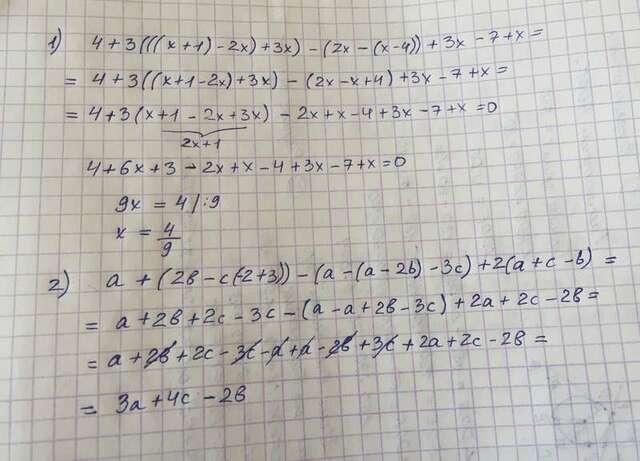 1) 4+3(((x+1)-2x)+3x)-(2x-(x-4))+3x-7+x=
= 4+3((x+1-2x)+3x)-(2x-x+4)+3x-7+x=
= 4+3(x+1-2x+3x)-2x+x-4+3x-7+x=0
2x+1
4+6x+3-2x+x-4+3x-7+x=0
9x = 4 /:9
x = 4/9
2) a+(2b-c(-2+3))-(a-(a-2b)-3c)+2(a+c-b)=
= a+2b+2c-3c-(a-a+2b-3c)+2a+2c-2b=
= a+2b+2c-3c-a+a-2b+3c+2a+2c-2b=
= 3a+4c-2b